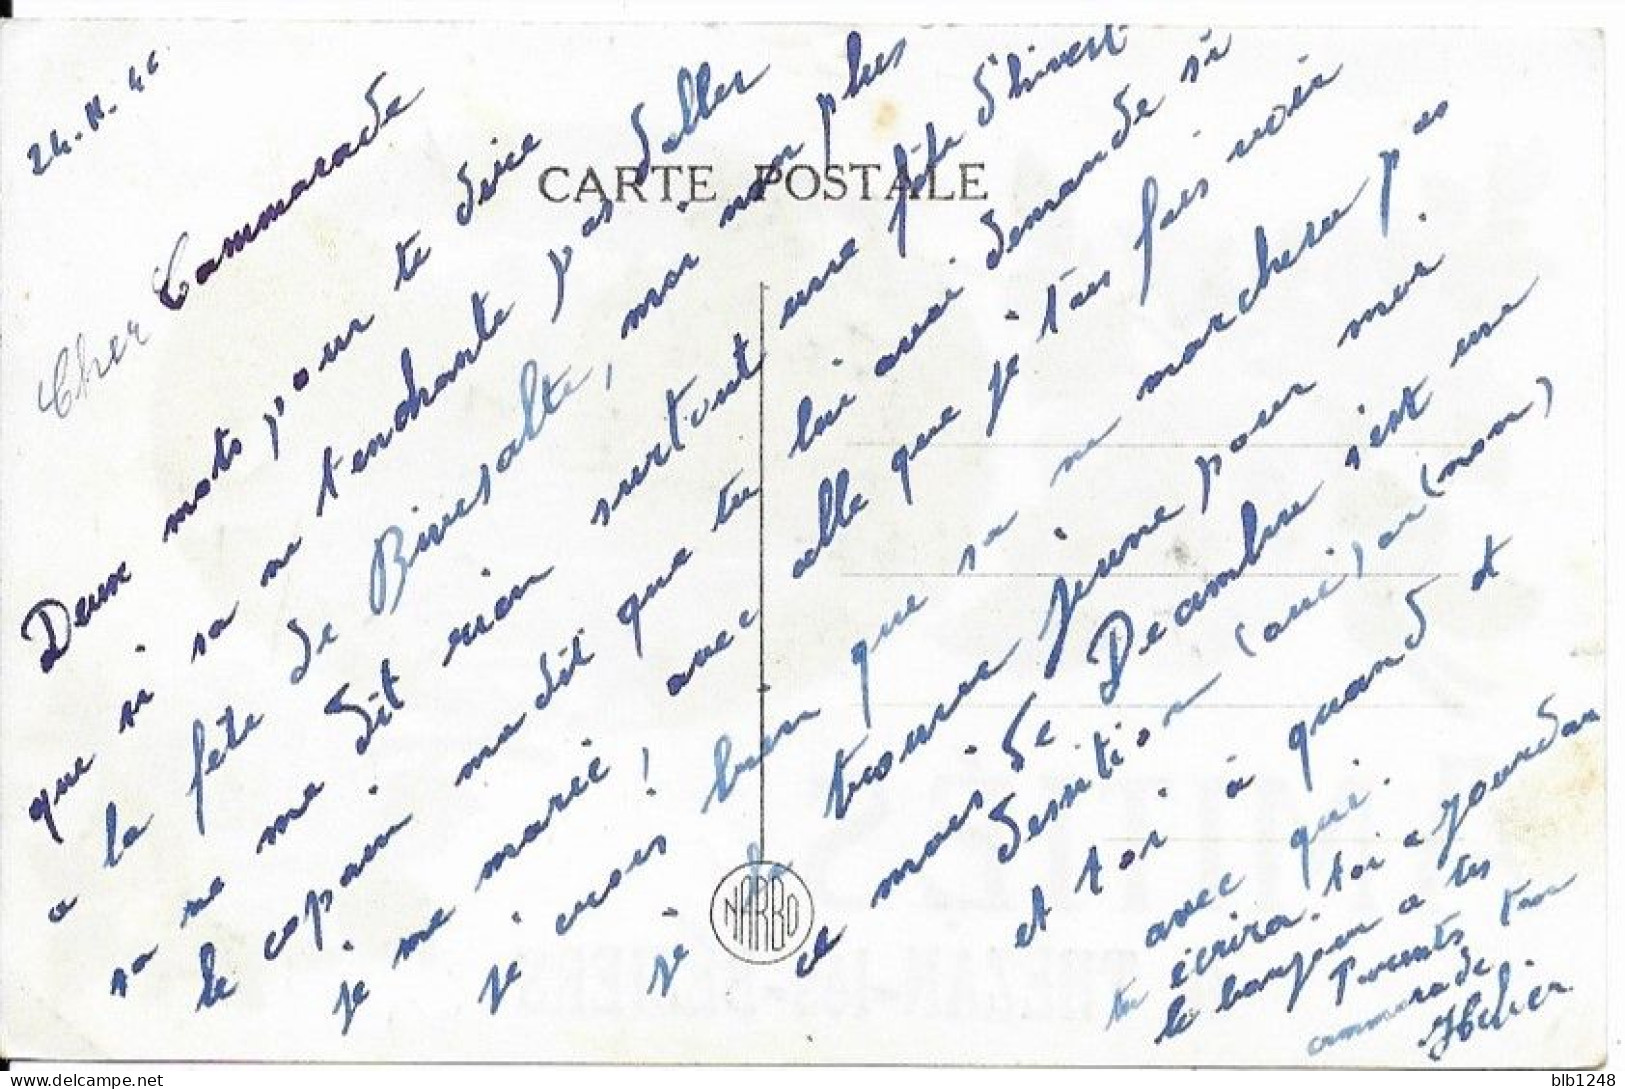 24.11.46
Cher Cammarade
Deux mots pour te dire
que si sa ne tendhante pas daller
a la fête de Rivesalte, moi non plus
sa ne me dit rien surtout une fête d'hivert.
le copain ma dit que tu lui avai demande si
je me marié! avec celle que je t'ais fais voir
je crois bien que sa ne marchera pas
je la trouve jeune pour moi.
ce mois de Decembre s'est une
desition (oui) ou (non)
et toi à quand et
avec qui.
tu écrira. toi a Jourdan
le bonjour a tes
Parents ton
cammarade
CARTE POSTALE
NARBO
blb1248